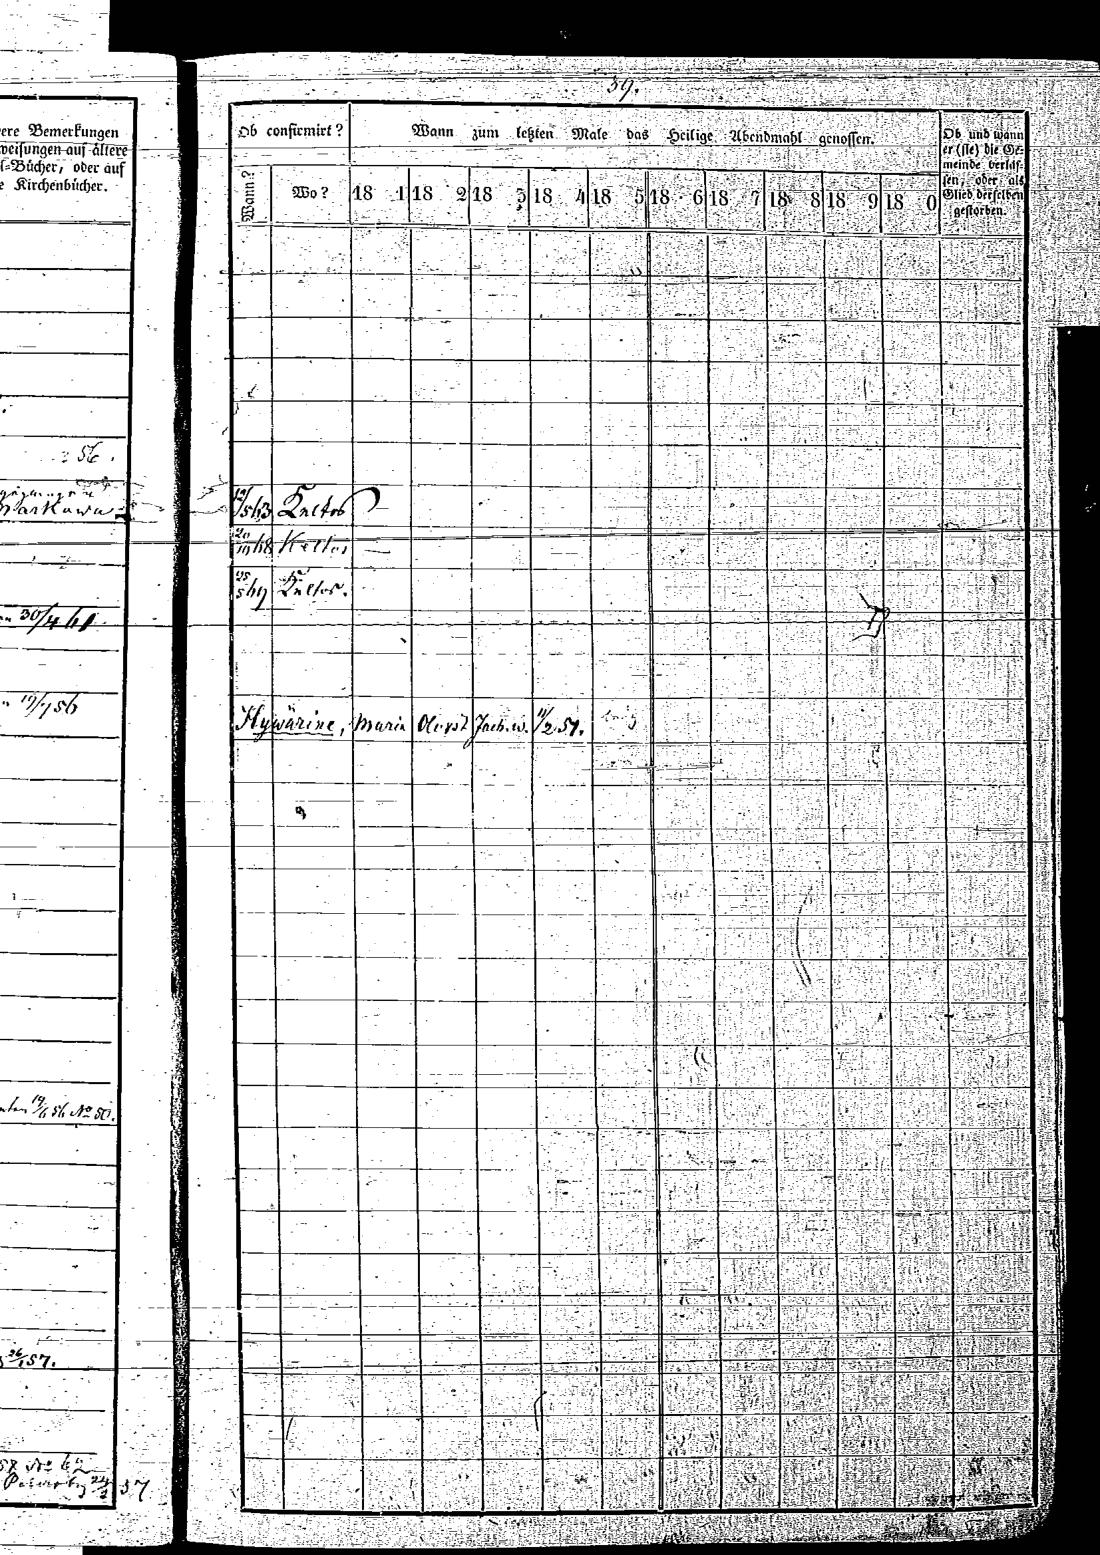 ere Bemerkungen
weisungen auf ältere
l=Bücher, oder auf
e Kirchenbücher.
56.
30/4 61.
19/7 56
19/6 56 No 50.
26/1 57.
59.
Ob confirmirt?
Wann zum letzten Male das Heilige Abendmahl genossen.
Ob und wann
er (sie) die Ge-
meinde verlas-
sen, oder als
Glied derselben
gestorben.
Wann?
Wo?
18 1 18 2 18 3 18 4 18 5 18 6 18 7 18 8 18 9 18 0
Keltos
Keltos
Keltos.
Hywärine, Maria Obrist Jach. w. 11/2 57.